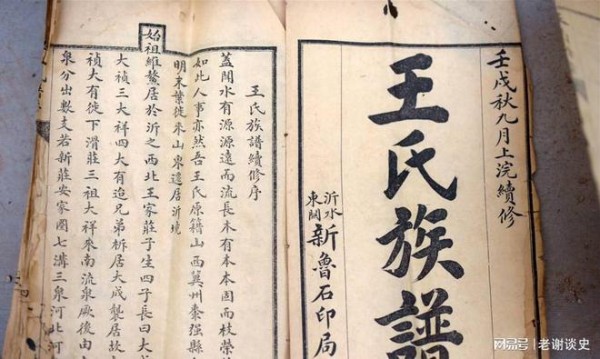 壬戌秋九月上浣續修
王氏族譜
沂水東關
新魯石印局
王氏族譜續修序
蓋聞水有源源遠而流長木有本本固而枝榮
如此人事亦然吾王氏原籍山西冀州棗強縣
明末業徙來山東遷居沂境
始祖維鰲居於沂之西北王家莊子生四子長曰大
大禎三大祥四大有迨兄弟析居大成襲居故
禎大有徙下滑莊三祖大祥來南流泉厥後由
泉分出數支若新莊安家圈七溝三泉河北河
网易号 | 老谢谈史